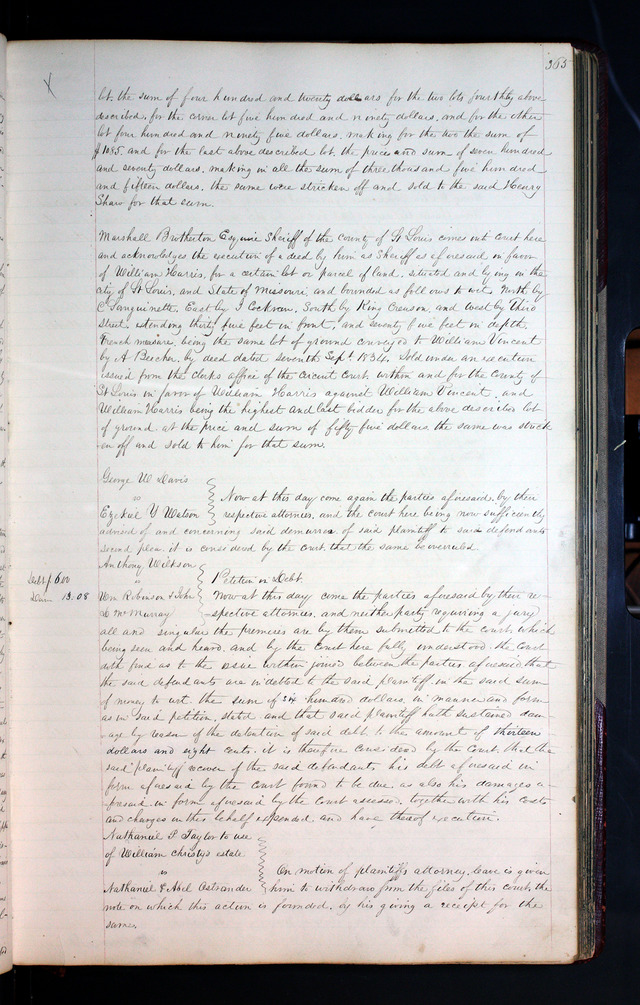 365
X
lot, the sum of four hundred and twenty dollars for the two lots fourthly above
described, for the corner lot five hundred and ninety dollars, and for the other
lot four hundred and ninety five dollars, making for the two the sum of
$1085. and for the last above described lot, the price and sum of seven hundred
and seventy dollars, making in all the sum of three thousand five hundred
and fifteen dollars, the same were stricken off and sold to the said Henry
Shaw for that sum.
Marshall Brotherton Esquire Sheriff of the County of St Louis comes into court here
and acknowledges the execution of a deed by him as Sheriff as aforesaid in favor
of William Harris, for a certain lot or parcel of land, situated and lying in the
city of St Louis, and State of Missouri, and bounded as follows to wit, North by
C Sanguinette, East by J Cockran, South by King Crenson, and west by Third
street, extending thirty five feet in front, and seventy five feet in depth
French measure, being the same lot of ground conveyed to William Vincent
by A Beecher, by deed dated seventh Sept 1834. Sold under an execution
issued from the clerks office of the circuit court, within and for the County of
St Louis in favor of William Harris against William Vincent, and
William Harris being the highest and last bidder for the above described lot
of ground, at the price and sum of fifty five dollars the same was struck
en off and sold to him for that sum.
George W Davis
vs
Now at this day come again the parties aforesaid, by their
Ezekiel Y Watson
respective attornies, and the court here being now sufficiently
advised of and concerning said demurrer of said plaintiff to said defendants
second plea, it is considered by the court that the same be overruled.
Anthony Wilkson
Debt $600
vs
Petition in Debt
Dam 13.08
Wm Robinson & John
Now at this day come the parties aforesaid by their re-
D McMurray
spective attornies, and neither party requiring a jury
all and singular the premises are by them submitted to the court, which
being seen and heard, and by the court here fully understood, the Court
doth find as to the issue within joined between the parties aforesaid that
the said defendants are indebted to the said plaintiff in the said sum
of money to wit, the sum of six hundred dollars in manner and form
as in said petition stated and that said plaintiff hath sustained dam-
age by reason of the detention of said debt, to the amount of thirteen
dollars and eight cents, it is therefore considered by the Court, that the
said plaintiff recover of the said defendants his debt aforesaid in
form aforesaid by the Court found to be due, as also his damages a-
foresaid in form aforesaid by the Court assessed, together with his costs
and charges in this behalf expended, and have thereof execution.
Nathaniel P Taylor to use
of William Christy's estate
vs
On motion of plaintiffs attorney, leave is given
Nathaniel & Abel Ostrander
him to withdraw from the files of this court, the
note on which this action is founded, by his giving a receipt for the
same.